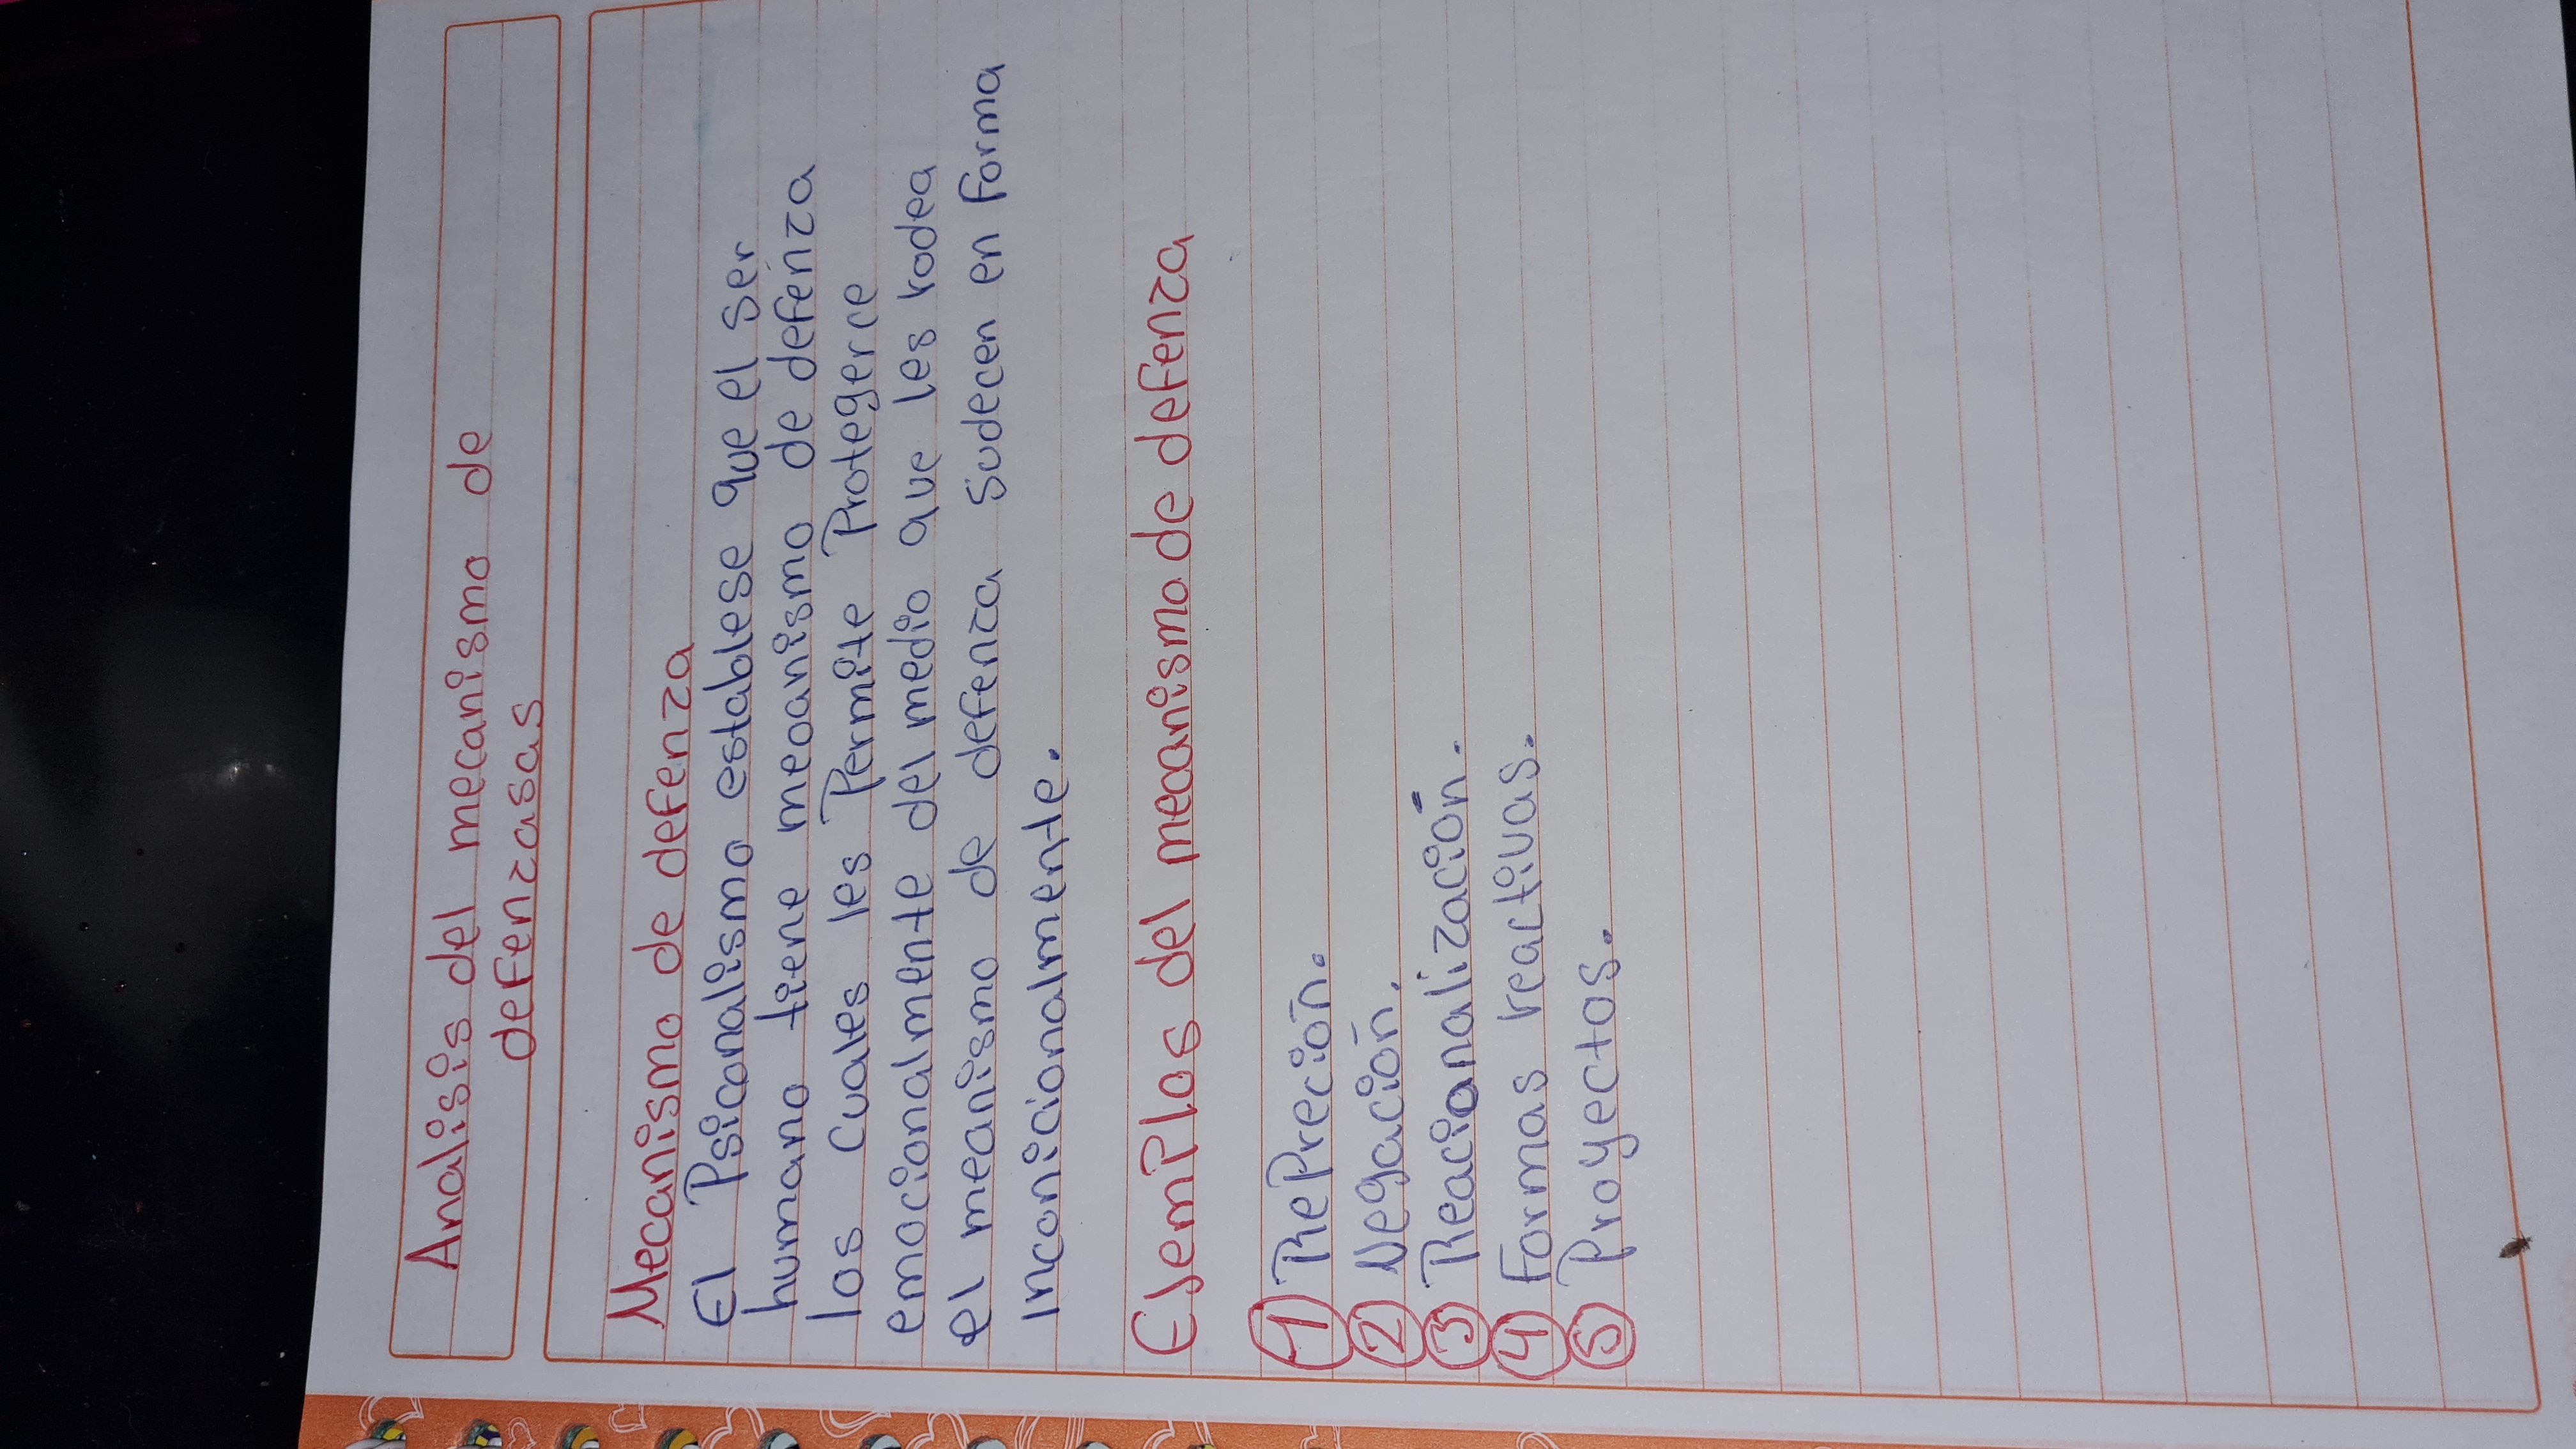 Analisis del mecanismo de
defenzasas
Mecanismo de defenza
El Psicoanalismo establese que el ser
humano tiene mecanismo de defenza
los cuales les Permite Protegerce
emocionalmente del medio que les rodea
el meanismo de defenza sudecen en forma
Inconicionalmente.
EJemPlos del mecanismo de defenza
1 RePreción.
2 Negación.
3 Reacionalización.
4 Formas reactivas.
5 Proyectos.